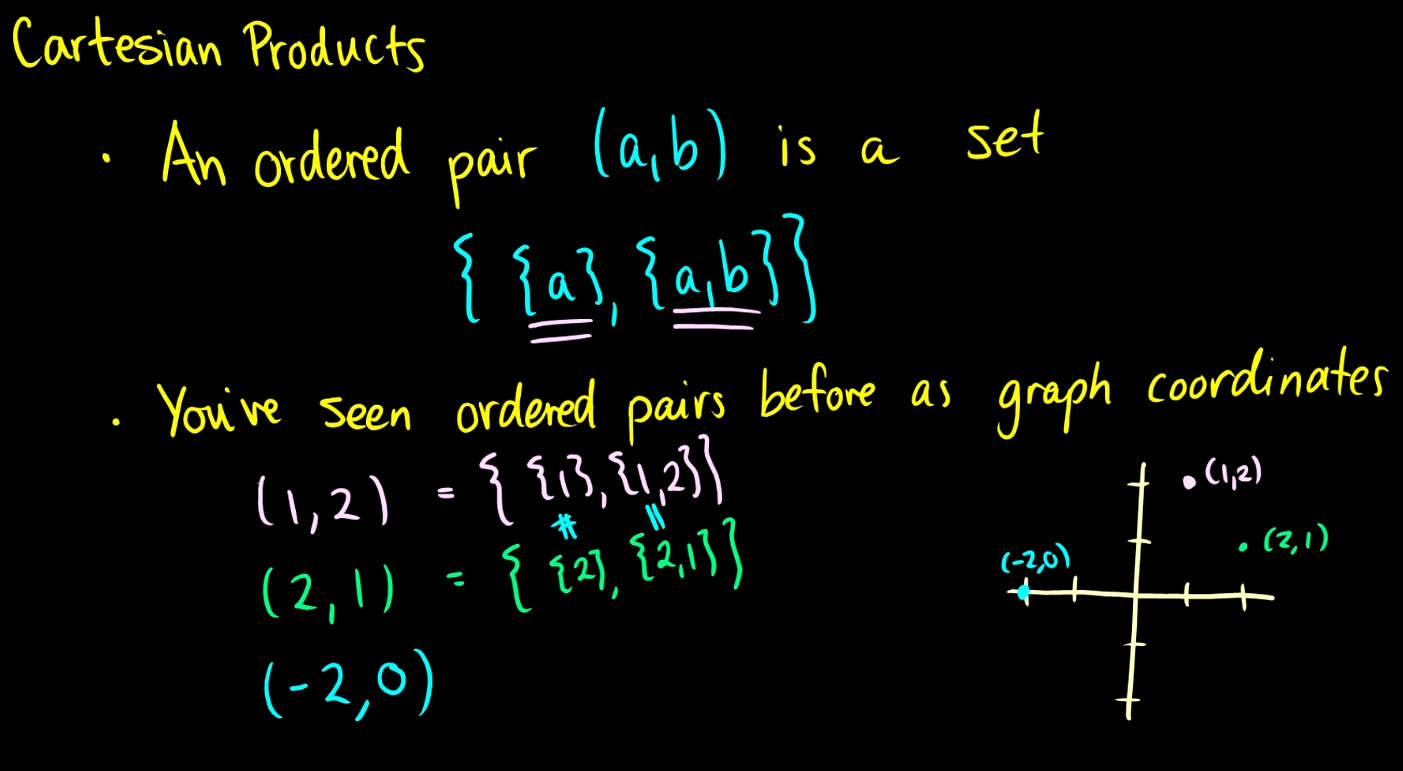 Cartesian Products
· An ordered pair (a,b) is a set
{ {a}, {a,b} }
· You've seen ordered pairs before as graph coordinates
(1,2) = { {1}, {1,2} }
≠ =
(2,1) = { {2}, {2,1} }
(-2,0)
(1,2)
(2,1)
(-2,0)